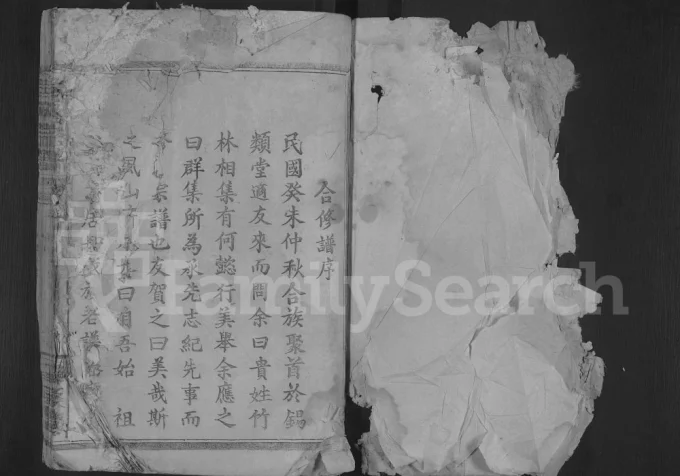 合修譜序
民國癸未仲秋合族聚首於錫
類堂適友來而問余曰貴姓竹
林相集有何懿行美舉余應之
曰群集所為承先志紀先事而
宗譜也友賀之曰美哉斯
之鳳山 集曰自吾始 祖
居 族老謀
FamilySearch